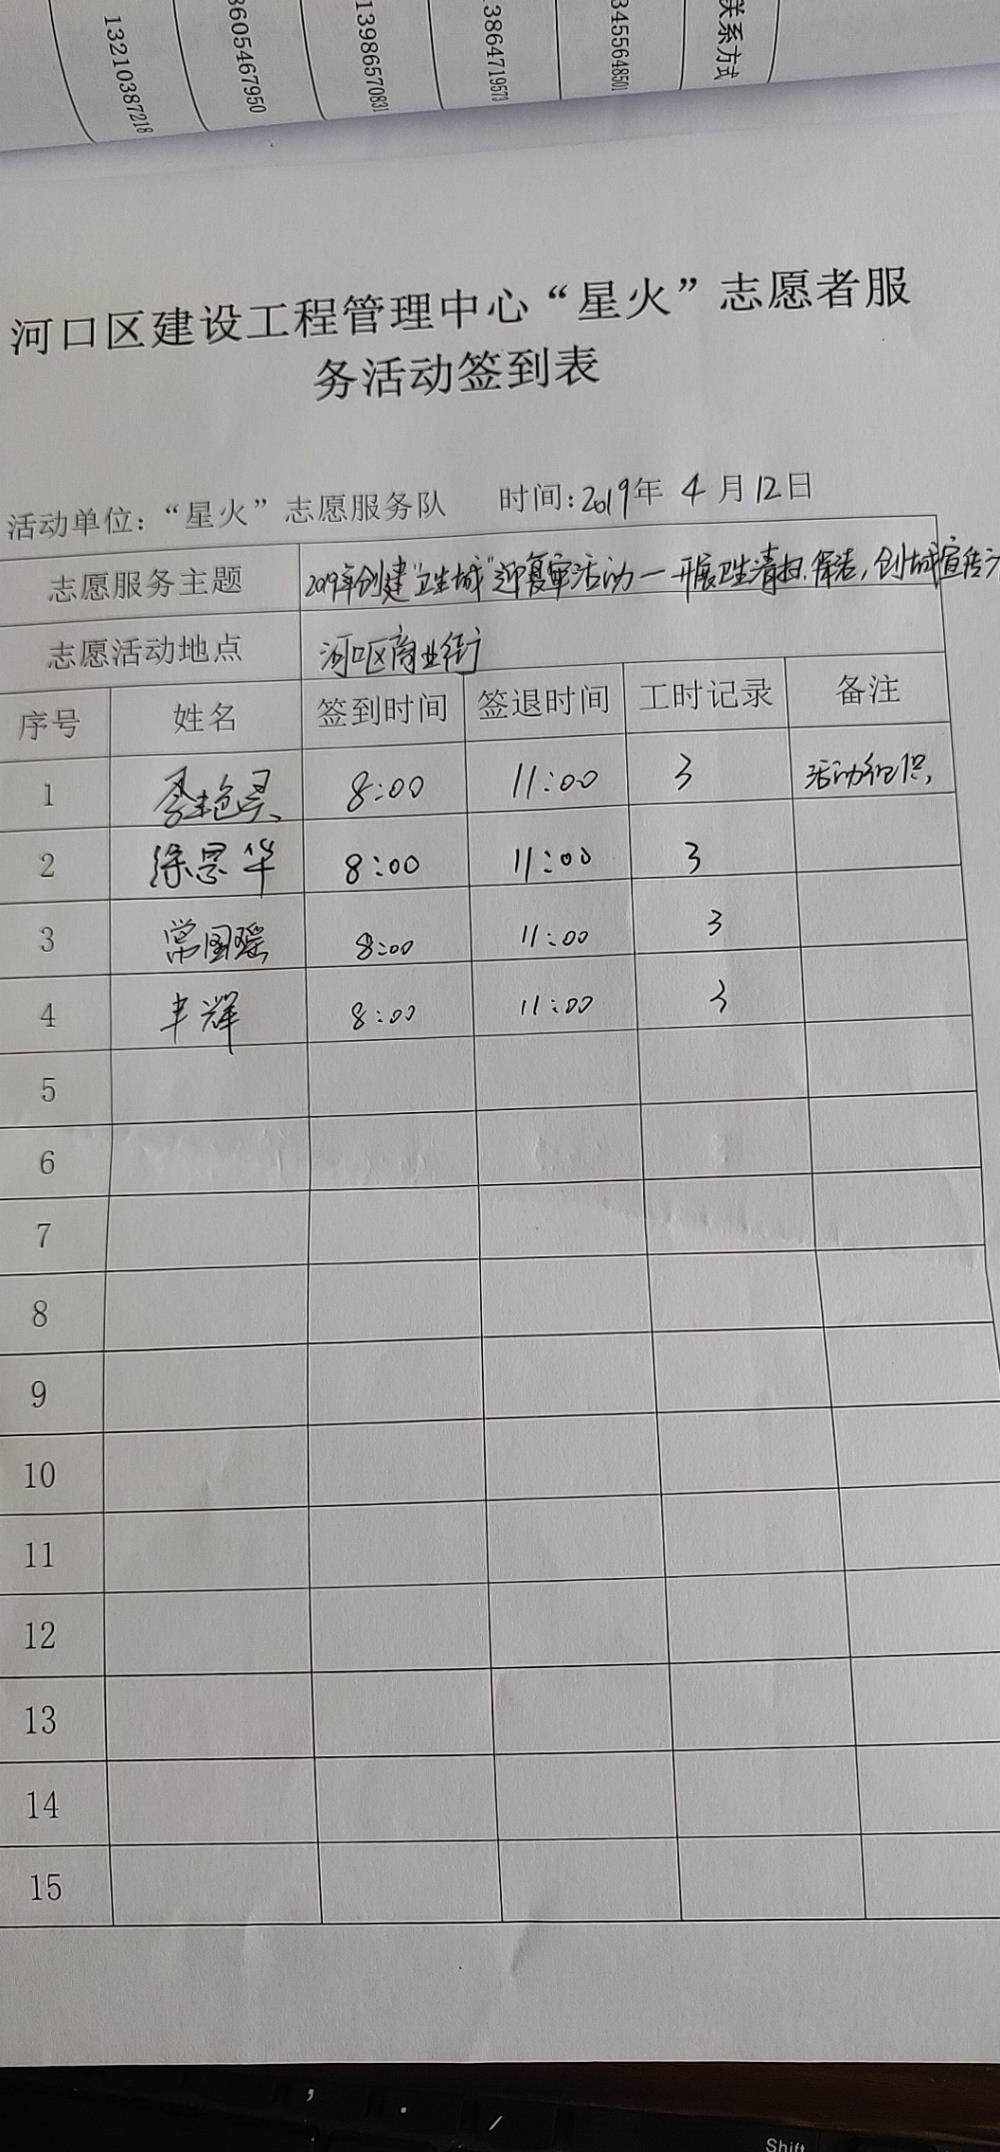 联系方式
3455648501
13864719573
13986570831
3605467950
13210387218
河口区建设工程管理中心“星火”志愿者服
务活动签到表
活动单位：“星火”志愿服务队 时间：2019年 4 月 12 日
志愿服务主题 2019年创建“卫生城”迎复审活动一开展卫生清扫、保洁，创城宣传
志愿活动地点 河口区商业街
序号 姓名 签到时间 签退时间 工时记录 备注
1 8:00 11:00 3 活动
2 徐恩华 8:00 11:00 3
3 常国瑶 8:00 11:00 3
4 丰辉 8:00 11:00 3
5
6
7
8
9
10
11
12
13
14
15
, . /
Shift